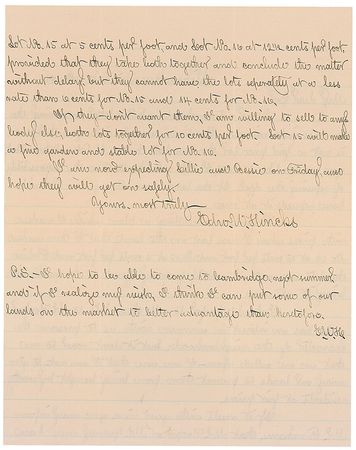 Lot No. 15 at 5 cents per foot, and Lot No. 16 at 12½ cents per foot
provided that they take both together and conclude the matter
without delay, but they cannot have the lots seperately at a less
rate than 6 cents for No. 15 and 14 cents for No. 16.
If they don't want them, I am willing to sell to any
body else, both lots together for 10 cents per foot. Lot 15 will make
a fine garden and stable lot for No. 16.
I am now expecting Lillie and Bessie on Friday, and
hope they will get on safely.
Yours most truly
Edw. W. Hincks
P.S. - I hope to be able to come to Cambridge next summer
and if I realize my wish, I think I can put some of our
lands on the market to better advantage than heretofore.
E.W.H.